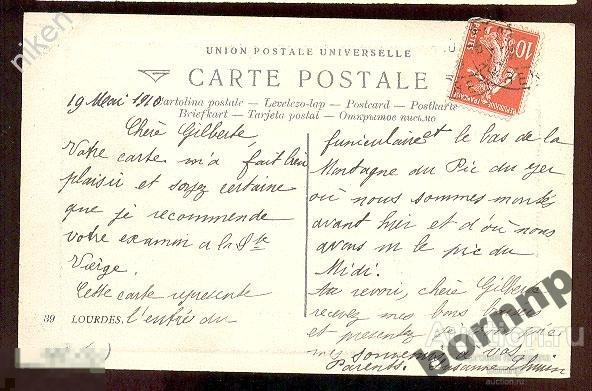 UNION POSTALE UNIVERSELLE
CARTE POSTALE
Cartolina postale — Levelezo-lap — Postcard — Postkarte
Briefkart — Tarjeta postal — Открытое письмо
19 Mai 1910
Chère Gilberte,
Votre carte m'a fait bien
plaisir et soyez certaine
que je recommende
votre examen a la Ste
Vièrge.
Cette carte represente
39 LOURDES. l'entrée du
funiculaire et le bas de la
Montagne du Pic du Ger
où nous sommes montés
avant hier et d'où nous
avons vu le pic du
Midi.
Au revoir, chère Gilberte
recevez mes bons
et presentez
mes souvenirs à vos
Parents. Susanne
10
niken
bomnp
Auction.ru
auction.ru